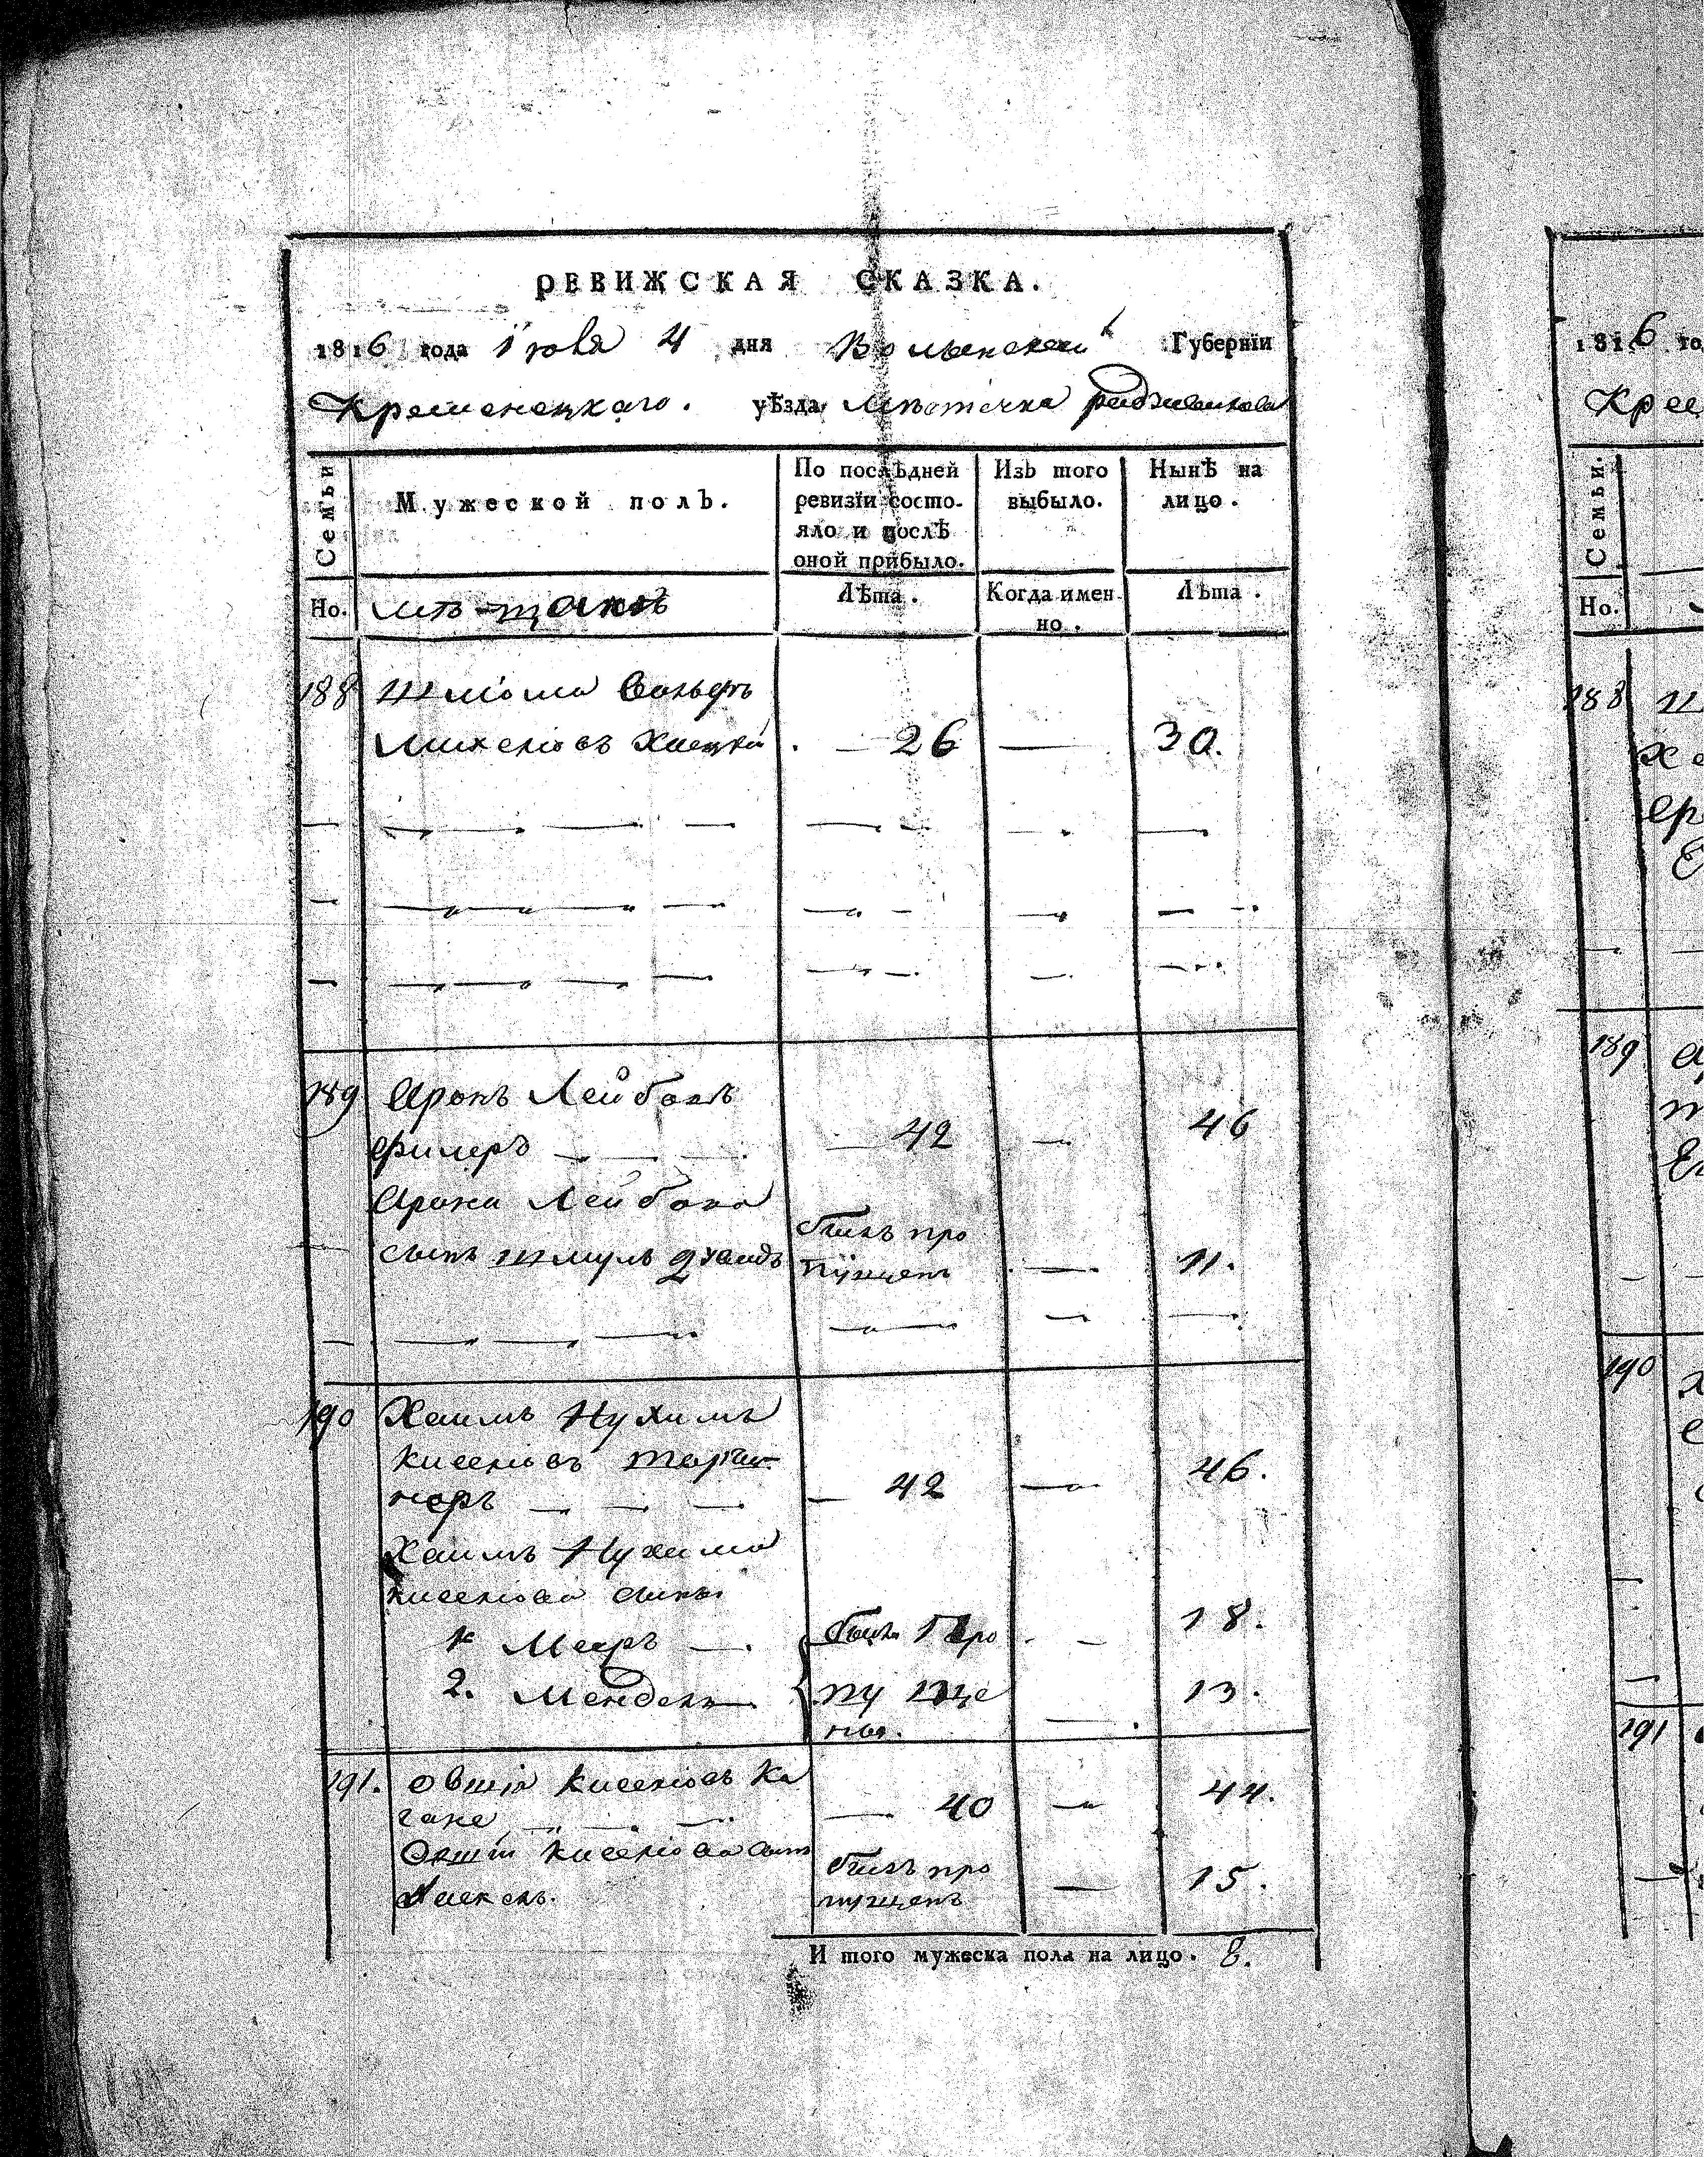 РЕВИЖСКАЯ СКАЗКА.
1816 года Iюля 4 дня Волынской Губернïи
Кременецкаго. уѣзда мѣстечка радзивилова
Семьи
Мужеской полъ.
По послѣдней ревизïи состо-
яло и послѣ оной прибыло.
Изъ того выбыло.
Нынѣ на лицо.
Но. мѣщанъ
Лѣта.
Когда имен
но.
Лѣта.
188 Шлiома Вольфъ
Михелiовъ 26 — 30.
189 Аронъ Лейбовъ
Филеръ — 42 — 46
Арона Лейбова
сынъ Шмуль былъ про
пущенъ — 11.
190 Хаимъ Нухимъ
киселiовъ
неръ — 42 — 46.
Хаимъ Нухима
киселiова сыны
1 Мееръ — были про — 18.
2. Мендель пуще — 13.
ны.
191. Овшiя киселiовъ Ка
гане — 40 — 44.
Овшiи киселiова сынъ былъ про
пущенъ — 15.
И того мужеска пола на лицо. 8.
1816 го
Кре
Семьи.
Но.
188
189
190
191